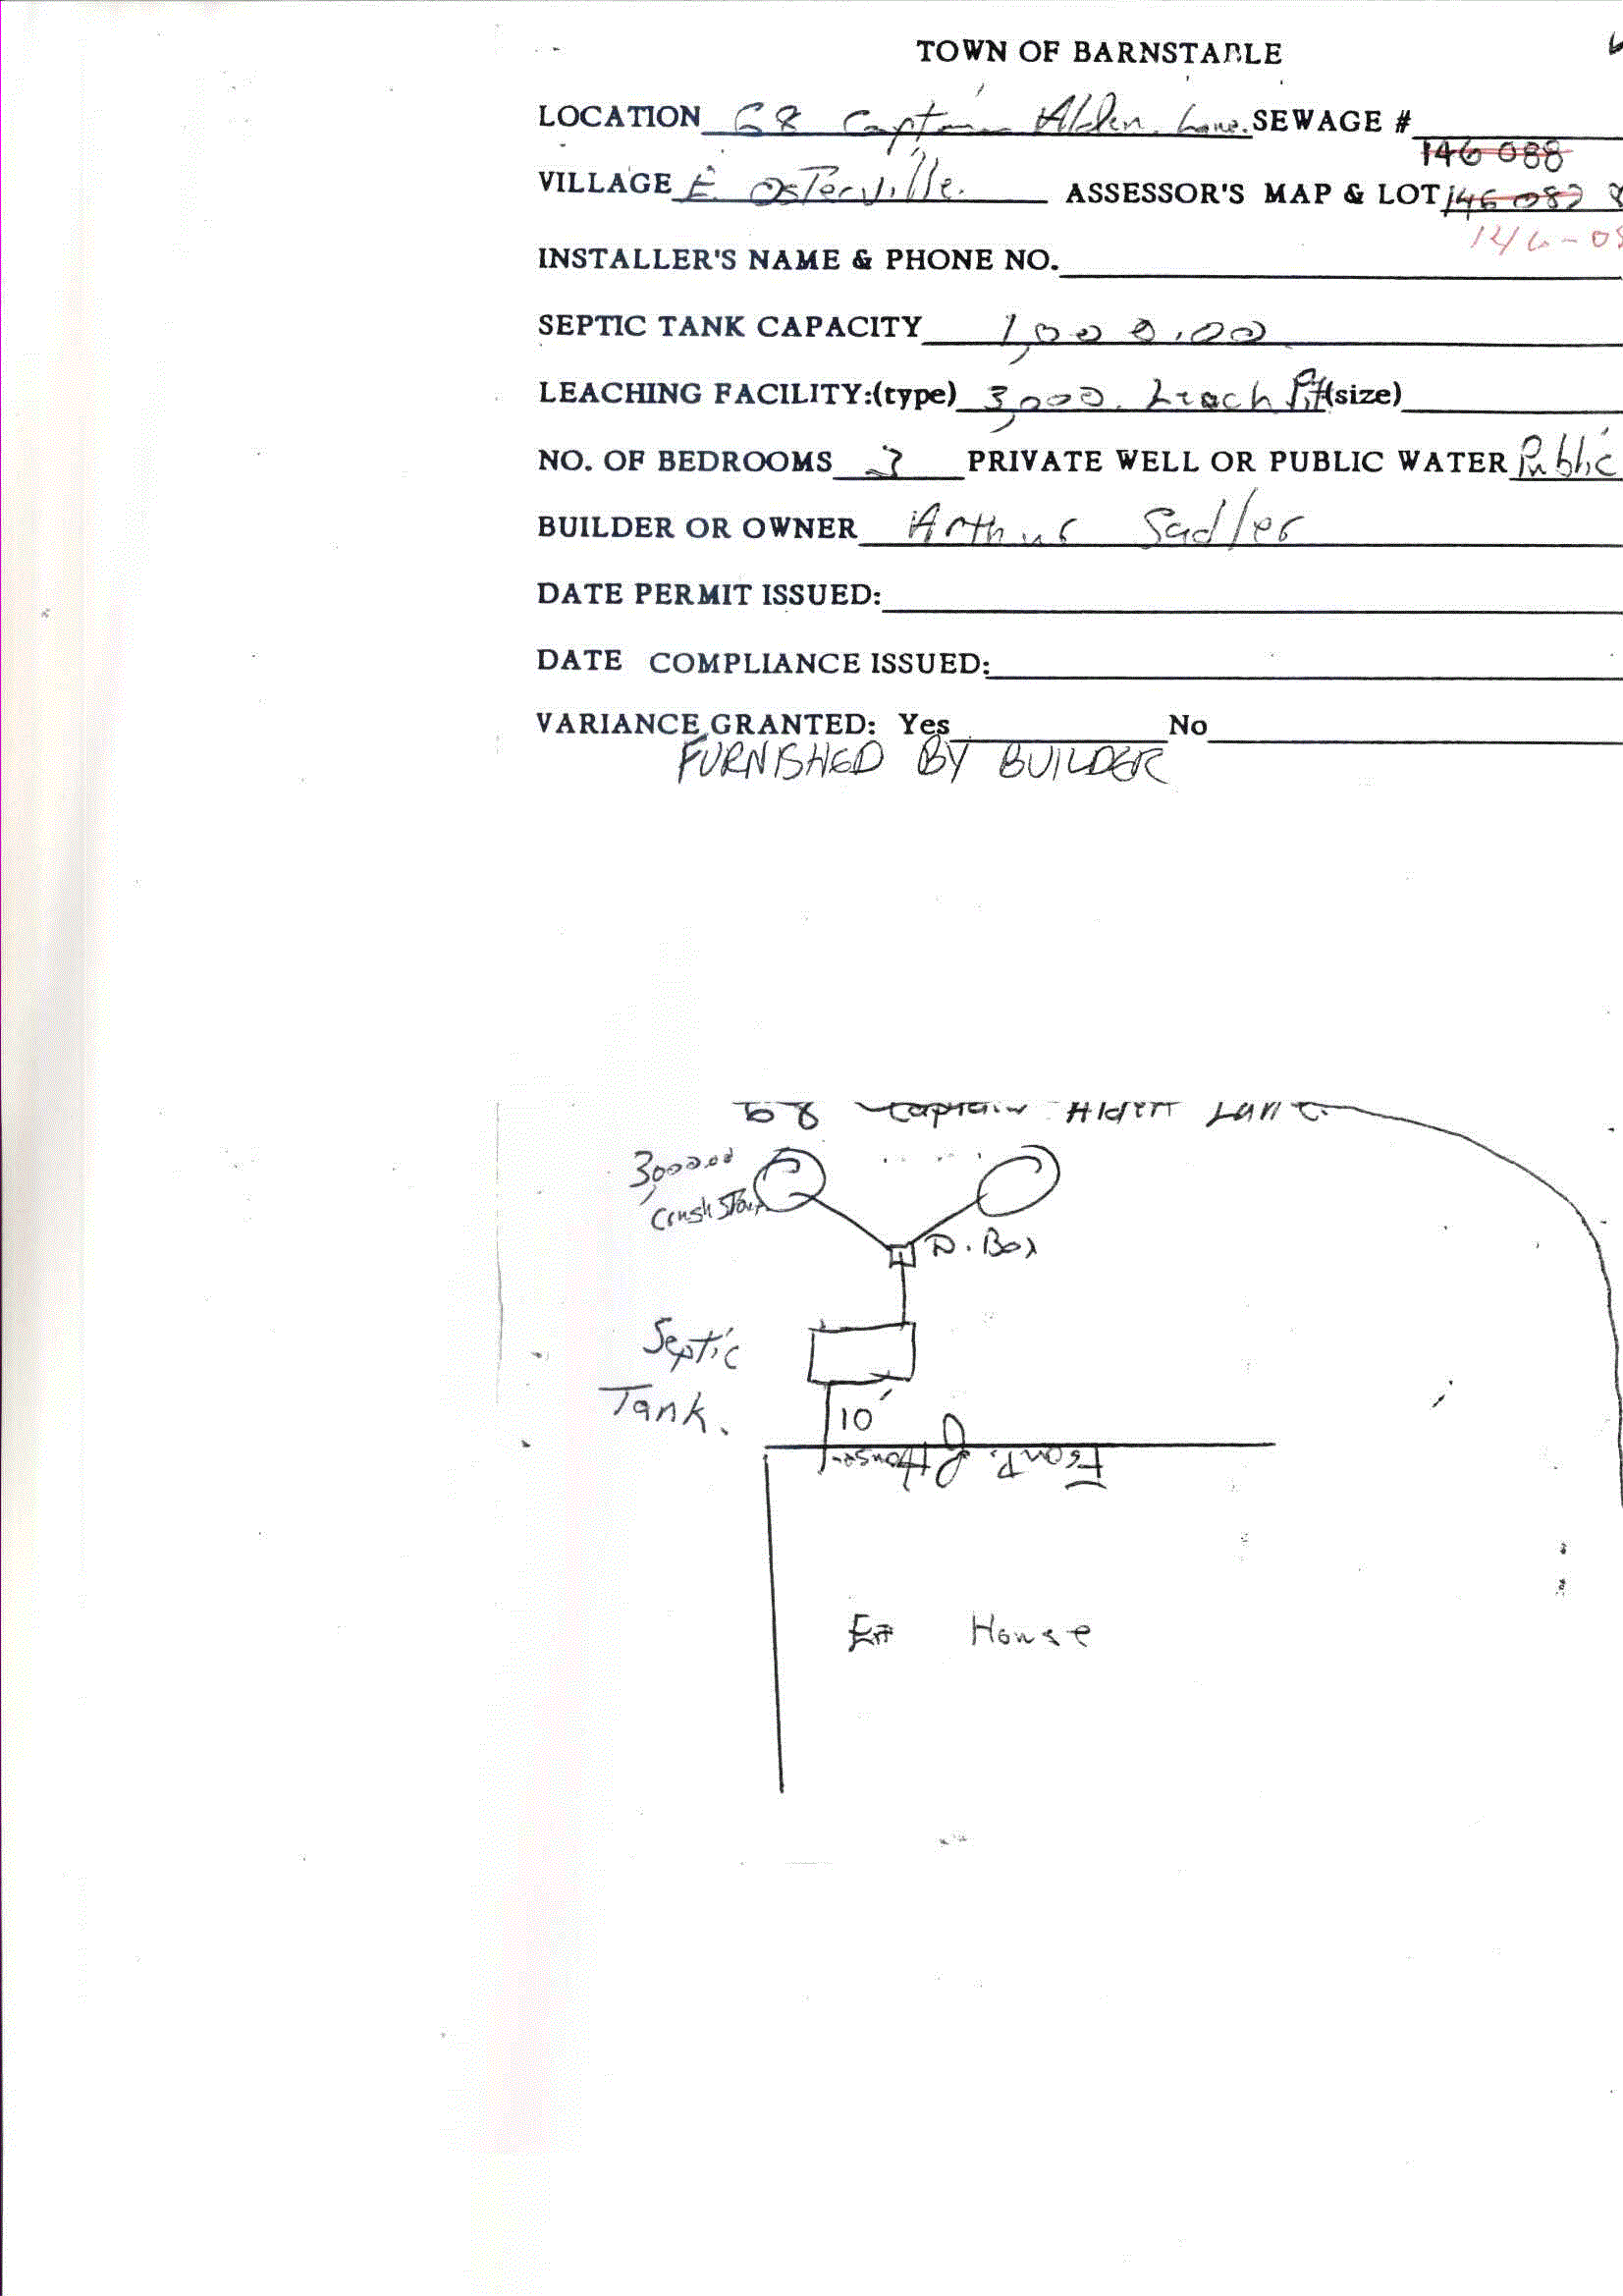 TOWN OF BARNSTABLE
LOCATION 68 Captain Alden Lane. SEWAGE #
146 088
VILLAGE E. Osterville. ASSESSOR'S MAP & LOT 146 087
146-08
INSTALLER'S NAME & PHONE NO.
SEPTIC TANK CAPACITY 1,000.00
LEACHING FACILITY:(type) 3,000. Leach Pit (size)
NO. OF BEDROOMS 3 PRIVATE WELL OR PUBLIC WATER Public
BUILDER OR OWNER Arthur Sadler
DATE PERMIT ISSUED:
DATE COMPLIANCE ISSUED:
VARIANCE GRANTED: Yes No
FURNISHED BY BUILDER
68 Captain Alden Lane.
3,000.00
Crush
D. Box
Septic
Tank.
10'
Front of House
House